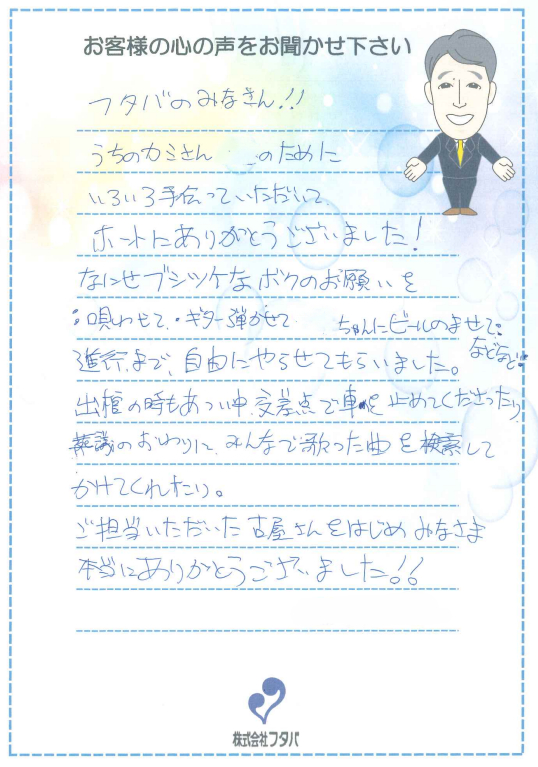 お客様の心の声をお聞かせ下さい
フタバのみなさん!!
うちのカミさん のために
いろいろ手伝っていただいて
ホントにありがとうございました!
なにせブシツケなボクのお願いを
・唄わせて・ギター弾かせて ちゃんにビールのませて・
などなど・
進行まで、自由にやらせてもらいました。
出棺の時もあつい中、交差点で車を止めてくださったり
葬議のおわりに、みんなで歌った曲を検索して
かけてくれたり。
ご担当いただいた古屋さんをはじめみなさま
本当にありがとうございました!!
株式会社フタバ